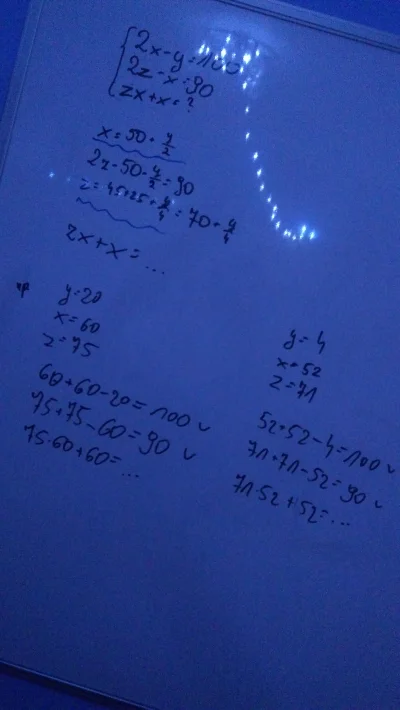 2x-y=100
2z-x=90
zx+x=?
x=50+y/2
2z-50-y/2=90
z=45+25+y/4=70+y/4
zx+x=...
np
y=20
x=60
z=75
60+60-20=100 v
75+75-60=90 v
75·60+60=...
y=4
x=52
z=71
52+52-4=100 v
71+71-52=90 v
71·52+52=...